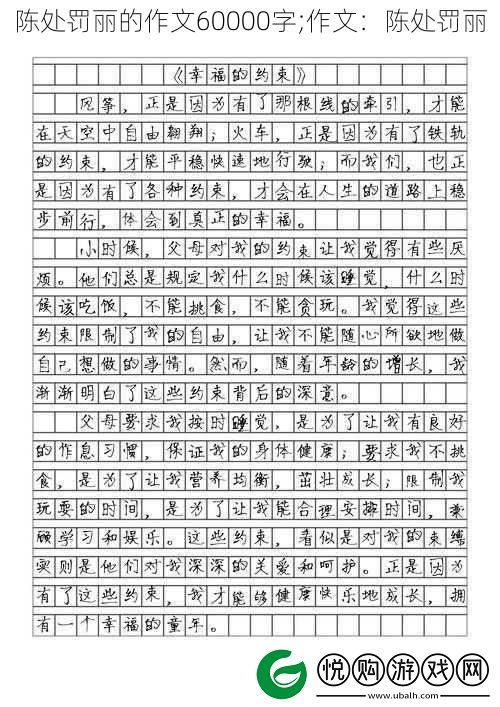 陈处罚丽的作文60000字;作文：陈处罚丽
《幸福的约束》
风筝，正是因为有了那根线的牵引，才能
在天空中自由翱翔；火车，正是因为有了铁轨
的约束，才能平稳快速地行驶；而我们，也正
是因为有了各种约束，才会在人生的道路上稳
步前行，体会到真正的幸福。
小时候，父母对我的约束让我觉得有些厌
烦。他们总是规定我什么时候该睡觉，什么时
候该吃饭，不能挑食，不能贪玩。我觉得这些
约束限制了我的自由，让我不能随心所欲地做
自己想做的事情。然而，随着年龄的增长，我
渐渐明白了这些约束背后的深意。
父母要求我按时睡觉，是为了让我有良好
的作息习惯，保证我的身体健康；要求我不挑
食，是为了让我营养均衡，茁壮成长；限制我
玩耍的时间，是为了让我能合理安排时间，兼
顾学习和娱乐。这些约束，看似是对我的束缚
实则是他们对我深深的关爱和呵护。正是因为
有了这些约束，我才能够健康快乐地成长，拥
有一个幸福的童年。
悦购游戏网
www.ubalh.com